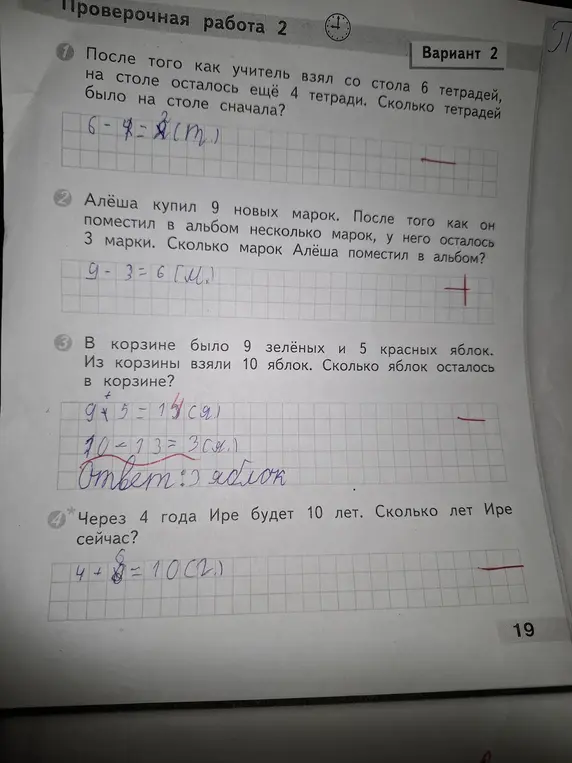 Проверочная работа 2
Вариант 2
1 После того как учитель взял со стола 6 тетрадей,
на столе осталось ещё 4 тетради. Сколько тетрадей
было на столе сначала?
6 - 4 = 2 (т.)
2 Алёша купил 9 новых марок. После того как он
поместил в альбом несколько марок, у него осталось
3 марки. Сколько марок Алёша поместил в альбом?
9 - 3 = 6 (м.)
3 В корзине было 9 зелёных и 5 красных яблок.
Из корзины взяли 10 яблок. Сколько яблок осталось
в корзине?
9 + 5 = 14 (я)
10 - 13 = 3 (я.)
Ответ: 3 яблок
4* Через 4 года Ире будет 10 лет. Сколько лет Ире
сейчас?
4 + 6 = 10 (г.)
19